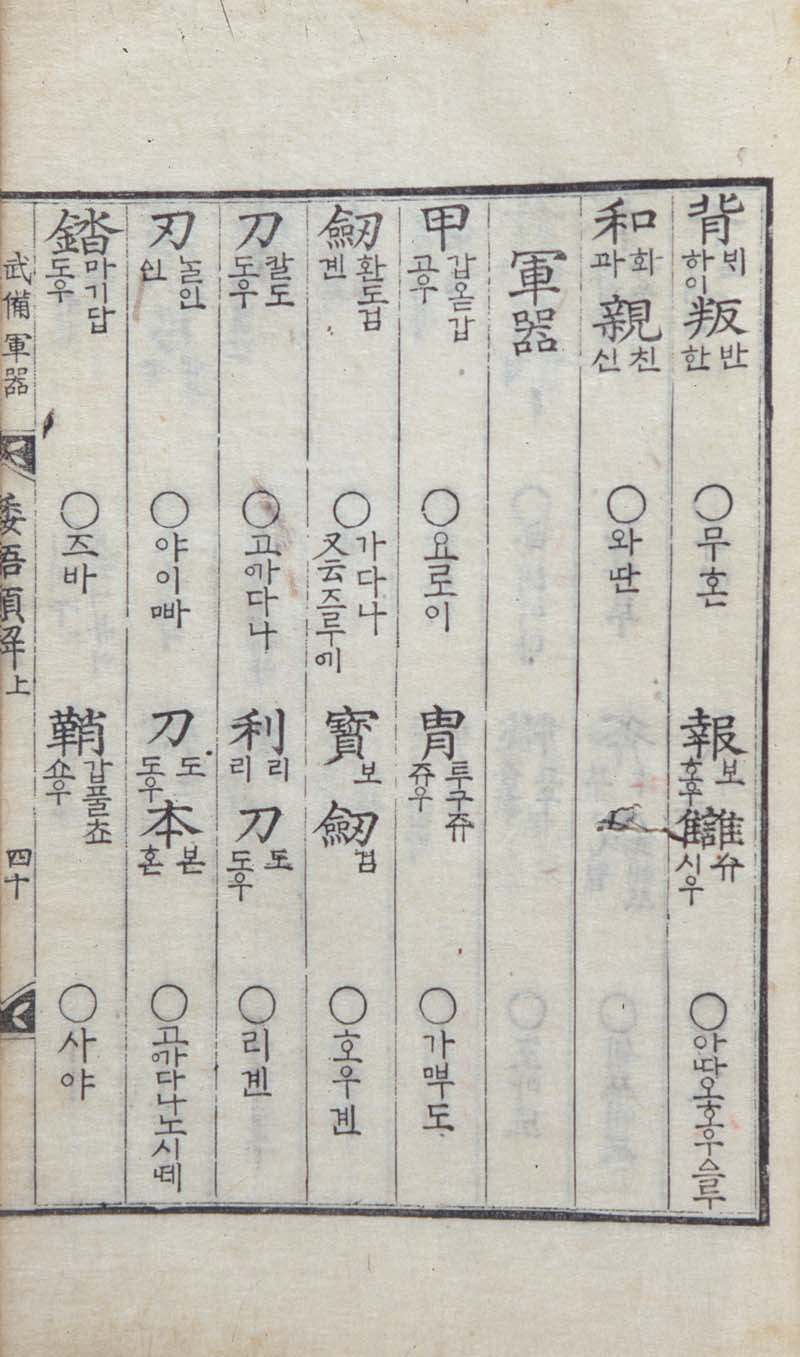 背 ᄇᆡ 하이 叛 반 한 ○무혼 報 보 호우 讎 슈 시우 ○아따오호우슬루
和 화 과 親 친 신 ○와딴
軍器
甲 갑옫갑 고우 ○요로이 冑 투구쥬 쥬우 ○가ᄲᅮ도
劒 환도검 겐 ○가다나 又云즐루에 寶 보 劒 검 ○호우겐
刀 칼도 도우 ○고까다나 利 리 리 刀 도 도우 ○리겐
刃 놀인 인 ○야이빠 刀 도 도우 本 본 혼 ○고까다나노시ᄯᅦ
錔 마기답 도우 ○즈바 鞘 갑풀쵸 쇼우 ○사야
武備 軍器 倭語類解上 四十